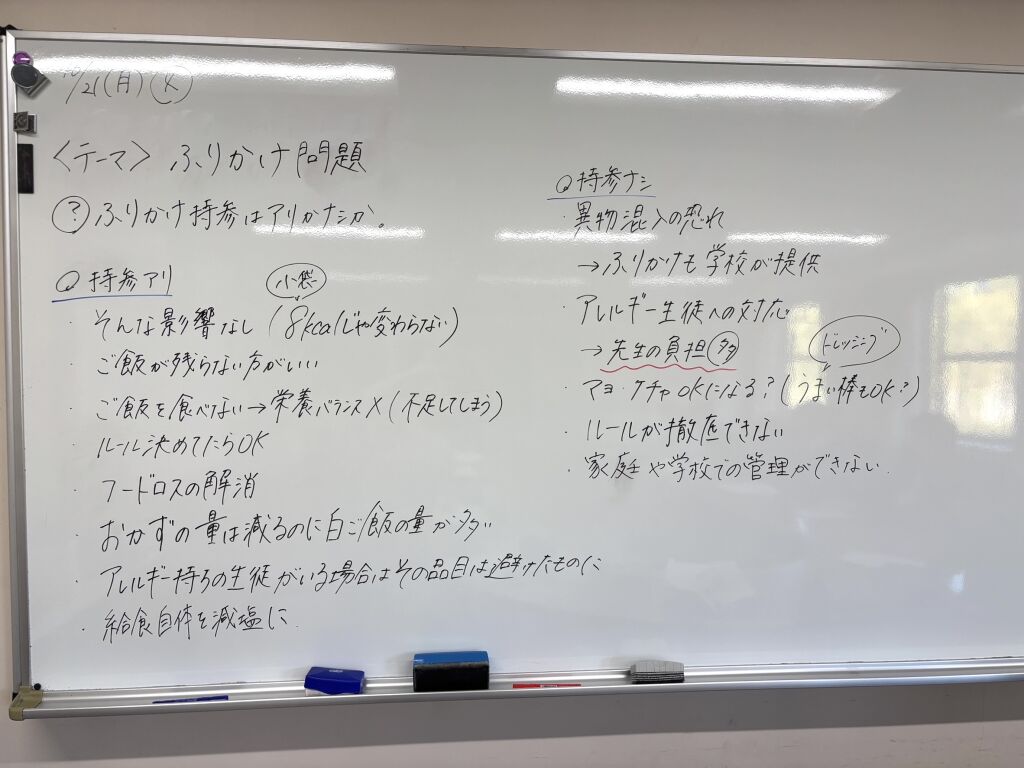 10/21(月)(火)
〈テーマ〉 ふりかけ問題
? ふりかけ持参はアリかナシか。
○ 持参アリ
小袋
・そんな影響なし (8kcalじゃ変わらない)
・ご飯が残らない方がいい
・ご飯を食べない→栄養バランス× (不足してしまう)
・ルール決めてたらOK
・フードロスの解消
・おかずの量は減るのに白ご飯の量が多い
・アレルギー持ちの生徒がいる場合はその品目は避けたものに
・給食自体を減塩に
○ 持参ナシ
・異物混入の恐れ
→ふりかけも学校が提供
・アレルギー生徒への対応
→先生の負担 多
ドレッシング
・マヨ・ケチャOKになる?(うまい棒もOK?)
・ルールが徹底できない
・家庭や学校での管理ができない